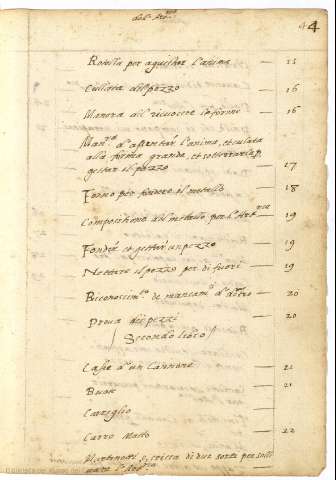 del Arte
4 4
Rotella per aguisare l'anima 15
Cullatta del pezzo 16
Manera di ricuocere le forme 16
Man.ra d'assentar l'anima, et culata
alla forma grande, et sotterrarla p.
gettar il pezzo 17
Forno per fondere il metallo 18
Compositione del metallo per l'Art.ria 19
Fonder et gettar un pezzo 19
Nettare il pezzo per di fuori 19
Riconoscim.to de mancam.ti d'dentro 20
Prova dei pezzi 20
Secondo libro
Casse d'un Cannone 21
Ruote 21
Carriglio
Carro Matto 22
Martinetti, o cricca di due sorte per solle
vare l'Art.ria